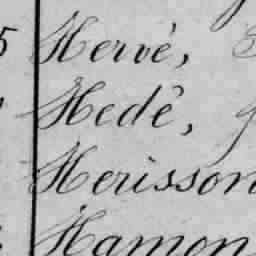 5 Hervé,
Hedé,
Herisson
Hamon